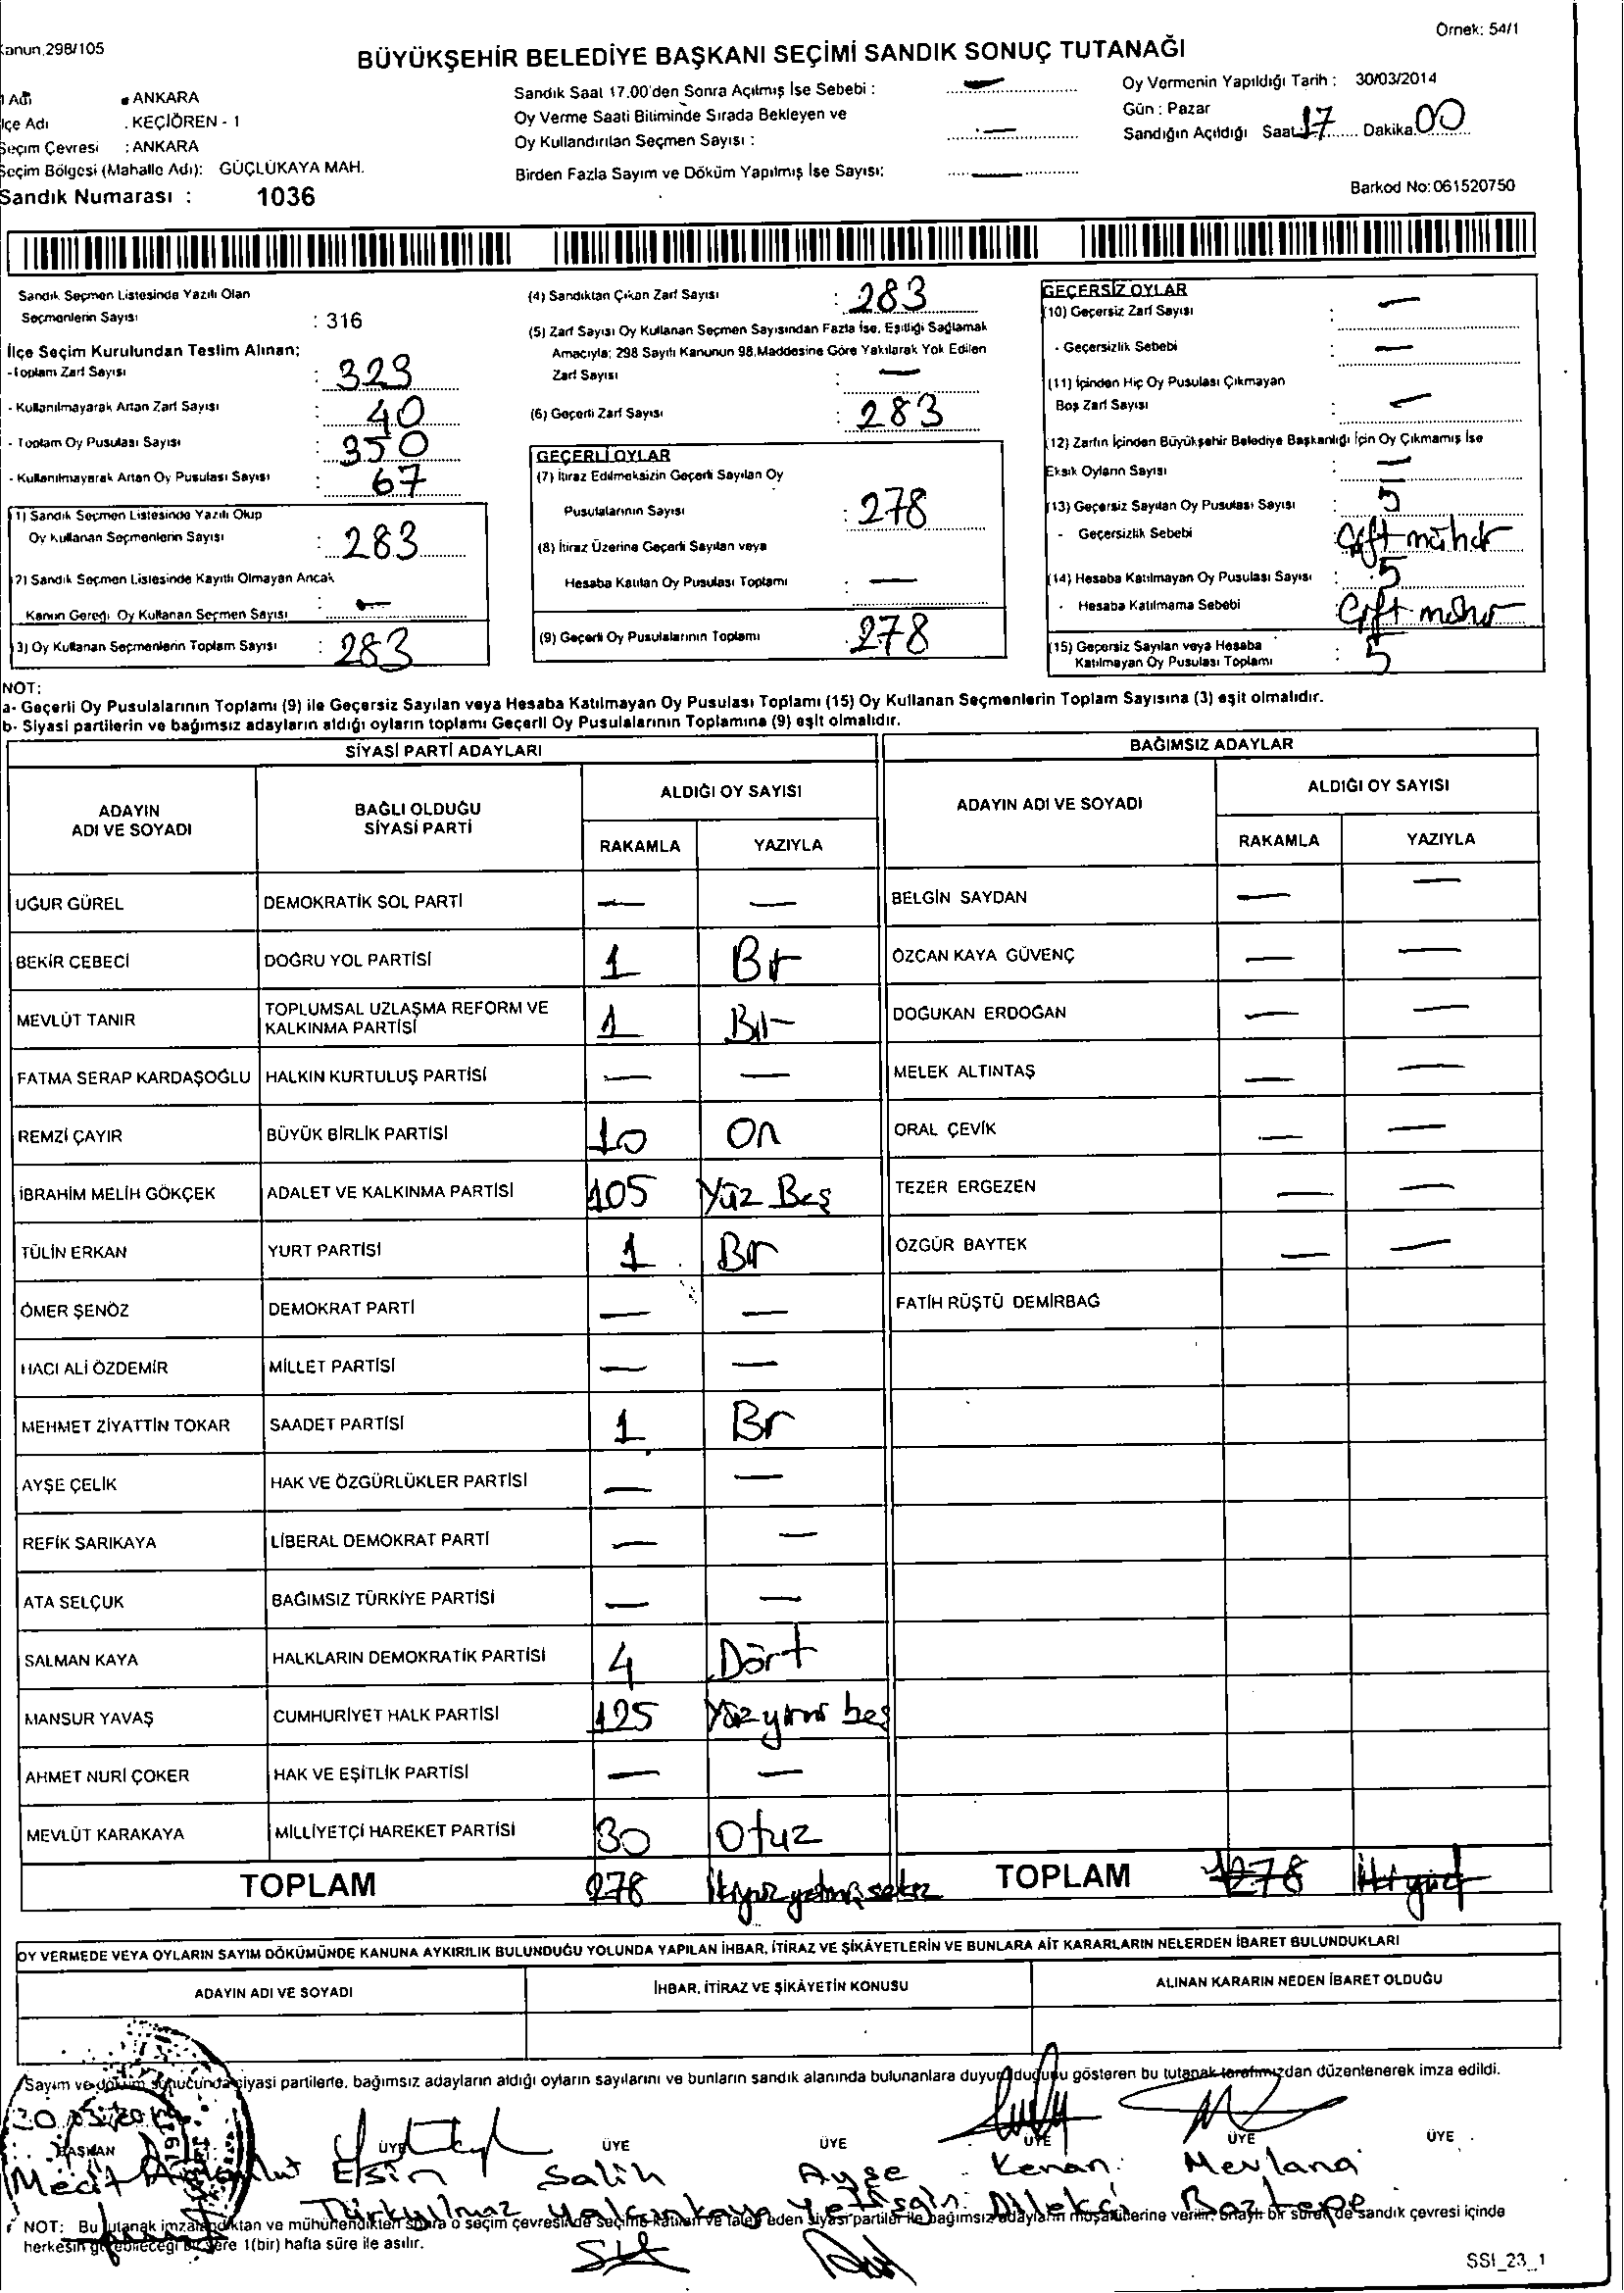 Kanun.298/105
Örnek: 54/1
BÜYÜKŞEHİR BELEDİYE BAŞKANI SEÇİMİ SANDIK SONUÇ TUTANAĞI
Adı : ANKARA
İlçe Adı : KEÇİÖREN - 1
Seçim Çevresi : ANKARA
Seçim Bölgesi (Mahalle Adı): GÜÇLÜKAYA MAH.
Sandık Numarası : 1036
Sandık Saat 17.00'den Sonra Açılmış İse Sebebi : —
Oy Verme Saati Bitiminde Sırada Bekleyen ve
Oy Kullandırılan Seçmen Sayısı : —
Birden Fazla Sayım ve Döküm Yapılmış İse Sayısı: —
Oy Vermenin Yapıldığı Tarih : 30/03/2014
Gün : Pazar
Sandığın Açıldığı Saat 17 Dakika 00
Barkod No: 061520750
Sandık Seçmen Listesinde Yazılı Olan
Seçmenlerin Sayısı : 316
İlçe Seçim Kurulundan Teslim Alınan;
-Toplam Zarf Sayısı : 323
- Kullanılmayarak Artan Zarf Sayısı : 40
- Toplam Oy Pusulası Sayısı : 350
- Kullanılmayarak Artan Oy Pusulası Sayısı : 67
1) Sandık Seçmen Listesinde Yazılı Olup
Oy Kullanan Seçmenlerin Sayısı : 283
2) Sandık Seçmen Listesinde Kayıtlı Olmayan Ancak
Kanun Gereği Oy Kullanan Seçmen Sayısı : —
3) Oy Kullanan Seçmenlerin Toplam Sayısı : 283
(4) Sandıktan Çıkan Zarf Sayısı : 283
(5) Zarf Sayısı Oy Kullanan Seçmen Sayısından Fazla İse, Eşitliği Sağlamak
Amacıyla; 298 Sayılı Kanunun 98.Maddesine Göre Yakılarak Yok Edilen
Zarf Sayısı : —
(6) Geçerli Zarf Sayısı : 283
GEÇERLİ OYLAR
(7) İtiraz Edilmeksizin Geçerli Sayılan Oy
Pusulalarının Sayısı : 278
(8) İtiraz Üzerine Geçerli Sayılan veya
Hesaba Katılan Oy Pusulası Toplamı : —
(9) Geçerli Oy Pusulalarının Toplamı : 278
GEÇERSİZ OYLAR
(10) Geçersiz Zarf Sayısı : —
- Geçersizlik Sebebi : —
(11) İçinden Hiç Oy Pusulası Çıkmayan
Boş Zarf Sayısı : —
(12) Zarfın İçinden Büyükşehir Belediye Başkanlığı İçin Oy Çıkmamış İse
Eksik Oyların Sayısı : —
(13) Geçersiz Sayılan Oy Pusulası Sayısı : 5
- Geçersizlik Sebebi Çift mühür
(14) Hesaba Katılmayan Oy Pusulası Sayısı : 5
- Hesaba Katılmama Sebebi Çift mühür
(15) Geçersiz Sayılan veya Hesaba
Katılmayan Oy Pusulası Toplamı : 5
NOT:
a- Geçerli Oy Pusulalarının Toplamı (9) ile Geçersiz Sayılan veya Hesaba Katılmayan Oy Pusulası Toplamı (15) Oy Kullanan Seçmenlerin Toplam Sayısına (3) eşit olmalıdır.
b- Siyasi partilerin ve bağımsız adayların aldığı oyların toplamı Geçerli Oy Pusulalarının Toplamına (9) eşit olmalıdır.
SİYASİ PARTİ ADAYLARI BAĞIMSIZ ADAYLAR
ADAYIN ADI VE SOYADI BAĞLI OLDUĞU SİYASİ PARTİ ALDIĞI OY SAYISI ADAYIN ADI VE SOYADI ALDIĞI OY SAYISI
RAKAMLA YAZIYLA RAKAMLA YAZIYLA
UĞUR GÜREL DEMOKRATİK SOL PARTİ — — BELGİN SAYDAN — —
BEKİR CEBECİ DOĞRU YOL PARTİSİ 1 Bir ÖZCAN KAYA GÜVENÇ — —
MEVLÜT TANIR TOPLUMSAL UZLAŞMA REFORM VE KALKINMA PARTİSİ 1 Bir DOĞUKAN ERDOĞAN — —
FATMA SERAP KARDAŞOĞLU HALKIN KURTULUŞ PARTİSİ — — MELEK ALTINTAŞ — —
REMZİ ÇAYIR BÜYÜK BİRLİK PARTİSİ 10 On ORAL ÇEVİK — —
İBRAHİM MELİH GÖKÇEK ADALET VE KALKINMA PARTİSİ 105 Yüz Beş TEZER ERGEZEN — —
TÜLİN ERKAN YURT PARTİSİ 1 Bir ÖZGÜR BAYTEK — —
ÖMER ŞENÖZ DEMOKRAT PARTİ — — FATİH RÜŞTÜ DEMİRBAĞ
HACI ALİ ÖZDEMİR MİLLET PARTİSİ — —
MEHMET ZİYATTİN TOKAR SAADET PARTİSİ 1 Bir
AYŞE ÇELİK HAK VE ÖZGÜRLÜKLER PARTİSİ — —
REFİK SARIKAYA LİBERAL DEMOKRAT PARTİ — —
ATA SELÇUK BAĞIMSIZ TÜRKİYE PARTİSİ — —
SALMAN KAYA HALKLARIN DEMOKRATİK PARTİSİ 4 Dört
MANSUR YAVAŞ CUMHURİYET HALK PARTİSİ 125 Yüz yirmi beş
AHMET NURİ ÇOKER HAK VE EŞİTLİK PARTİSİ — —
MEVLÜT KARAKAYA MİLLİYETÇİ HAREKET PARTİSİ 30 Otuz
TOPLAM 278 İkiyüz yetmiş sekiz TOPLAM 278 İkiyüz
OY VERMEDE VEYA OYLARIN SAYIM DÖKÜMÜNDE KANUNA AYKIRILIK BULUNDUĞU YOLUNDA YAPILAN İHBAR, İTİRAZ VE ŞİKÂYETLERİN VE BUNLARA AİT KARARLARIN NELERDEN İBARET BULUNDUKLARI
ADAYIN ADI VE SOYADI İHBAR, İTİRAZ VE ŞİKÂYETİN KONUSU ALINAN KARARIN NEDEN İBARET OLDUĞU
Sayım ve döküm sonucunda siyasi partilerle, bağımsız adayların aldığı oyların sayılarını ve bunların sandık alanında bulunanlara duyurulduğunu gösteren bu tutanak tarafımızdan düzenlenerek imza edildi.
30.03.2014
BAŞKAN ÜYE ÜYE ÜYE ÜYE ÜYE ÜYE
Mecit Elsin Salih Ayşe Kenan Mevlana
Türkyılmaz Yalçınkaya Yetişgin Dilekçi Boztepe
NOT: Bu tutanak imzalandıktan ve mühürlendikten sonra o seçim çevresinde seçime katılan ve talep eden siyasi partiler ile bağımsız adayların müşahitlerine verilir, onaylı bir sureti de sandık çevresi içinde
herkesin görebileceği bir yere 1(bir) hafta süre ile asılır.
SSI_23_1